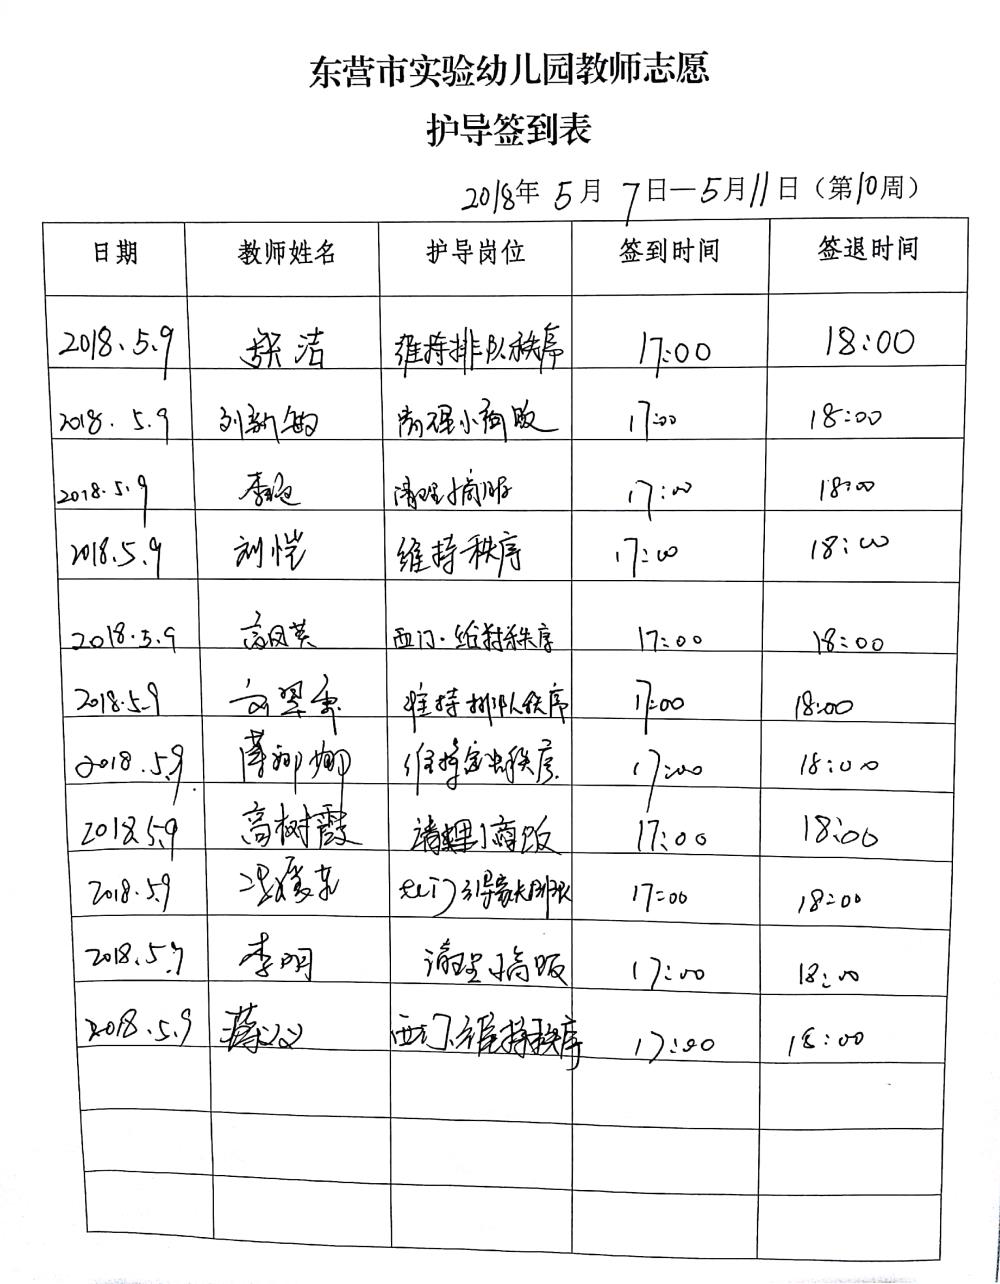 东营市实验幼儿园教师志愿
护导签到表
2018年5月7日—5月11日（第10周）
日期 教师姓名 护导岗位 签到时间 签退时间
2018.5.9 张洁 维持排队秩序 17:00 18:00
2018.5.9 刘新敏 清理小商贩 17:00 18:00
2018.5.9 李 清理小商贩 17:00 18:00
2018.5.9 刘恺 维持秩序 17:00 18:00
2018.5.9 高凤英 西门.维持秩序 17:00 18:00
2018.5.9 翠 维持排队秩序 17:00 18:00
2018.5.9 娜 维持 秩序 17:00 18:00
2018.5.9 高树霞 清理小商贩 17:00 18:00
2018.5.9 门引导家长 17:00 18:00
2018.5.9 李明 清理小商贩 17:00 18:00
2018.5.9 蔡义义 西门.维持秩序 17:00 18:00